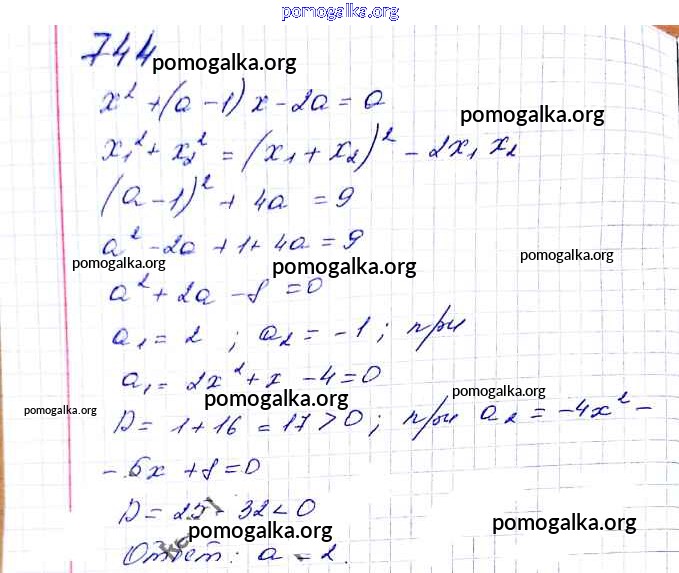 pomogalka.org
744
pomogalka.org
x² + (a - 1) x - 2a = 0
pomogalka.org
x₁² + x₂² = (x₁ + x₂)² - 2x₁ x₂
(a - 1)² + 4a = 9
a² - 2a + 1 + 4a = 9
pomogalka.org pomogalka.org pomogalka.org
a² + 2a - 8 = 0
a₁ = 2 ; a₂ = -1 ; при
a₁ = 2x² + x - 4 = 0
pomogalka.org pomogalka.org pomogalka.org
D = 1 + 16 = 17 > 0 ; при a₂ = -4x² -
- 5x + 8 = 0
D = 25 - 32 < 0
pomogalka.org pomogalka.org
Ответ: a = 2.